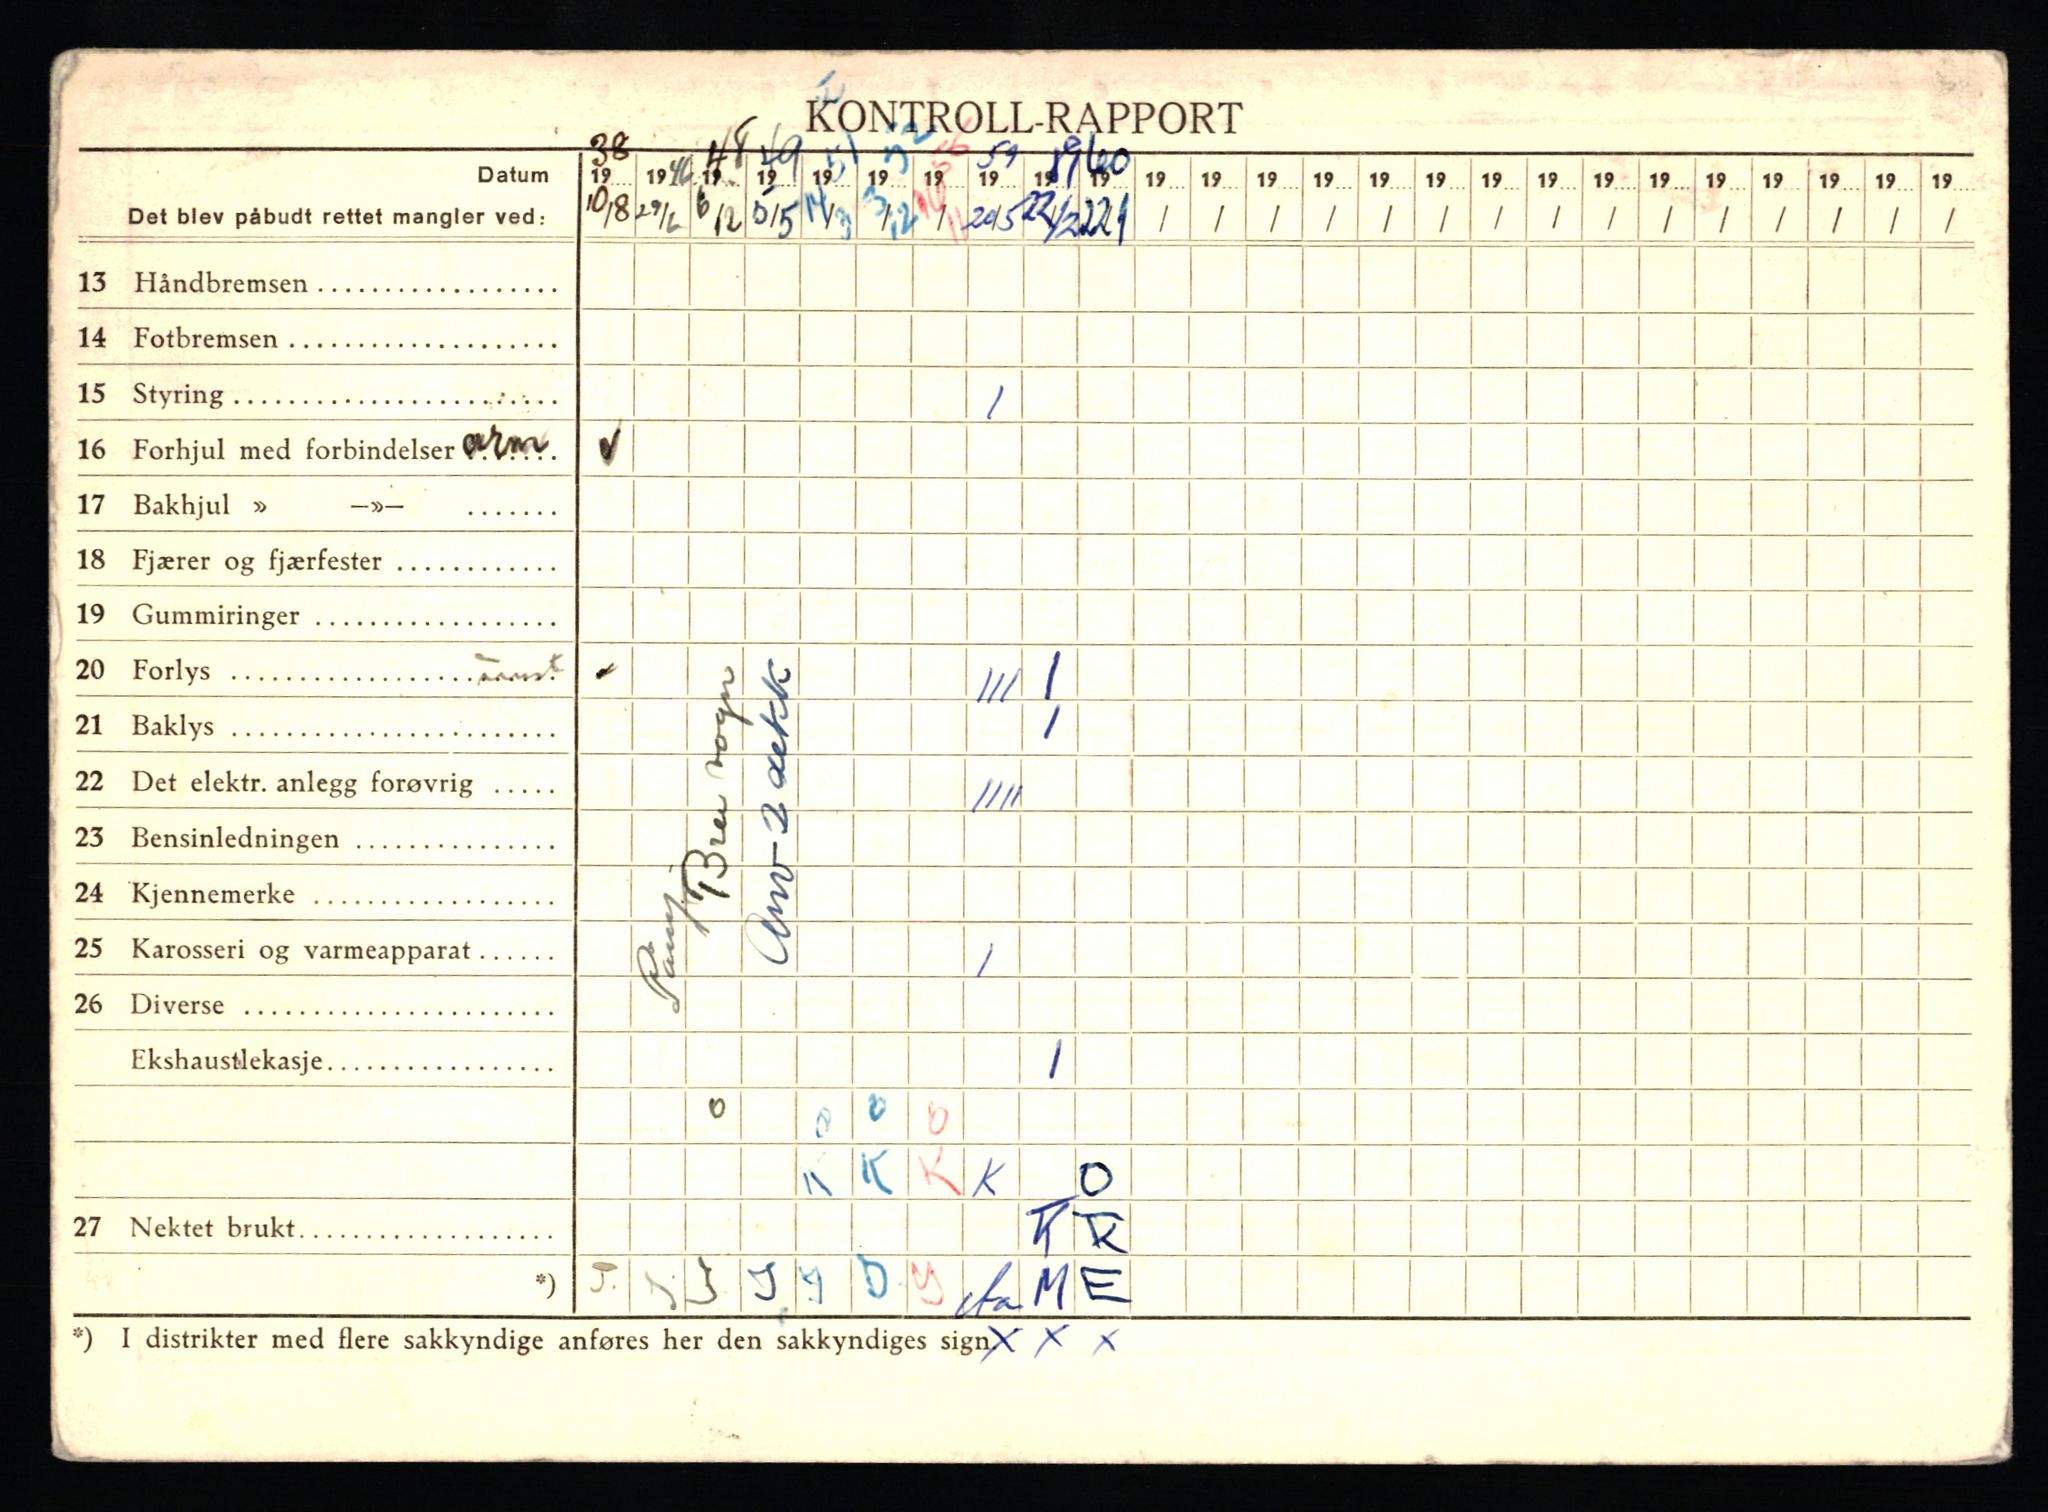 KONTROLL-RAPPORT
38 48 49 51 52 56 59 59 60
Datum 19 1946 19 19 19 19 19 19 19 19 19 19 19 19 19 19 19 19 19 19 19 19 19 19 19
Det blev påbudt rettet mangler ved: 10/8 29/6 6/12 5/5 14/3 3/12 20/5 22/12 22/1 / / / / / / / / / / / / / / /
13 Håndbremsen
14 Fotbremsen
15 Styring /
16 Forhjul med forbindelser arm ✓
17 Bakhjul » —»—
18 Fjærer og fjærfester
19 Gummiringer
20 Forlys ✓ /// /
21 Baklys /
22 Det elektr. anlegg forøvrig ////
23 Bensinledningen
24 Kjennemerke
25 Karosseri og varmeapparat /
26 Diverse
Brei vogn
Anv 2 dekk
Ekshaustlekasje /
o o o o
K K K K O
27 Nektet brukt K K
*) J. J J J J D Y M E
*) I distrikter med flere sakkyndige anføres her den sakkyndiges sign. X X X